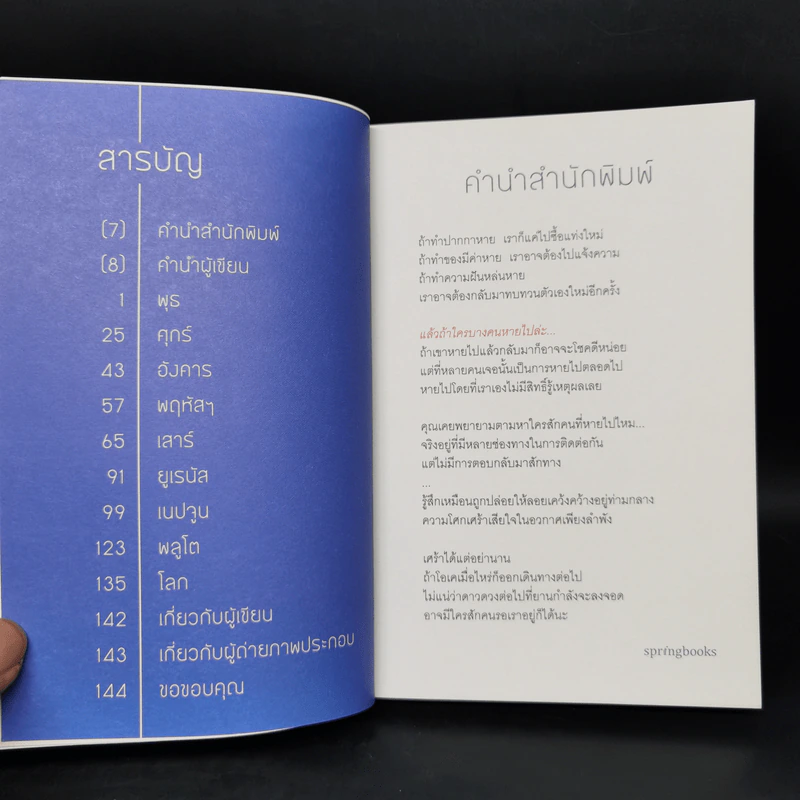 สารบัญ
(7) คำนำสำนักพิมพ์
(8) คำนำผู้เขียน
1 พุธ
25 ศุกร์
43 อังคาร
57 พฤหัสฯ
65 เสาร์
91 ยูเรนัส
99 เนปจูน
123 พลูโต
135 โลก
142 เกี่ยวกับผู้เขียน
143 เกี่ยวกับผู้ถ่ายภาพประกอบ
144 ขอขอบคุณ
คำนำสำนักพิมพ์
ถ้าทำปากกาหาย เราก็แค่ไปซื้อแท่งใหม่
ถ้าทำของมีค่าหาย เราอาจต้องไปแจ้งความ
ถ้าทำความฝันหล่นหาย
เราอาจต้องกลับมาทบทวนตัวเองใหม่อีกครั้ง
แล้วถ้าใครบางคนหายไปล่ะ...
ถ้าเขาหายไปแล้วกลับมาก็อาจจะโชคดีหน่อย
แต่ที่หลายคนเจอนั้นเป็นการหายไปตลอดไป
หายไปโดยที่เราเองไม่มีสิทธิ์รู้เหตุผลเลย
คุณเคยพยายามตามหาใครสักคนที่หายไปไหม...
จริงอยู่ที่มีหลายช่องทางในการติดต่อกัน
แต่ไม่มีการตอบกลับมาสักทาง
...
รู้สึกเหมือนถูกปล่อยให้ลอยเคว้งคว้างอยู่ท่ามกลาง
ความโศกเศร้าเสียใจในอวกาศเพียงลำพัง
เศร้าได้แต่อย่านาน
ถ้าโอเคเมื่อไหร่ก็ออกเดินทางต่อไป
ไม่แน่ว่าดาวดวงต่อไปที่ยานกำลังจะลงจอด
อาจมีใครสักคนรอเราอยู่ก็ได้นะ
springbooks